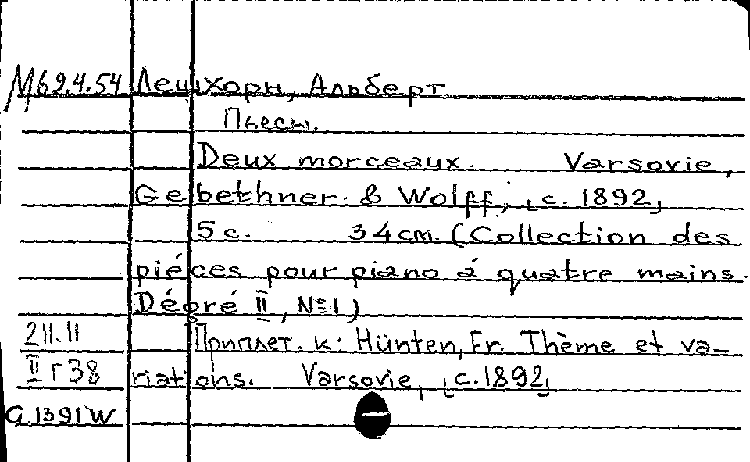 М69.4.54 Лешхорн, Альберт
Пьесы.
Deux morceaux. Varsovie,
Gebethner & Wolff, [c. 1892]
5 с. 34 см. (Collection des
piéces pour piano á quatre mains.
Dégré II, №1)
211.11 Приплет. к: Hünten, Fr. Thème et va-
II г 38 riations. Varsovie, [c. 1892]
G 1391 W